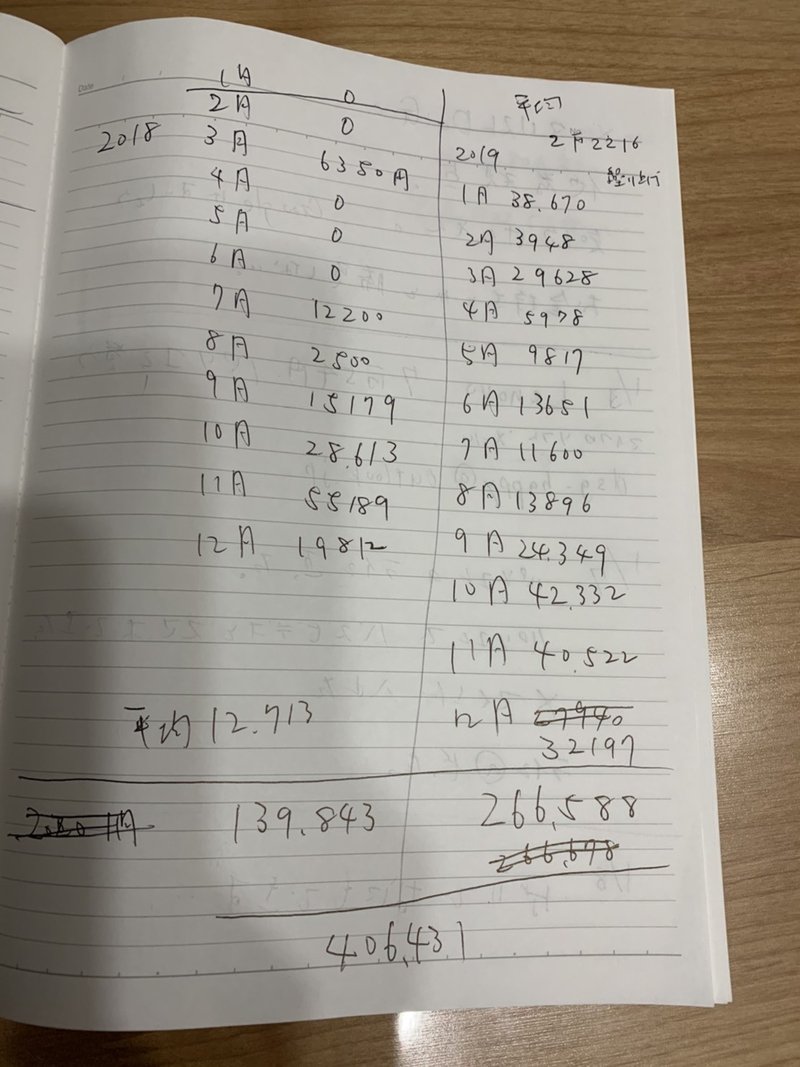 Date
1月 0
2月 0
2018 3月 6350円
4月 0
5月 0
6月 0
7月 12200
8月 2500
9月 15179
10月 28.613
11月 55189
12月 19812
平均 12.713
139.843
平均
2万2216
2019
1月 38.670
2月 3948
3月 29628
4月 5978
5月 9817
6月 13651
7月 11600
8月 13896
9月 24.349
10月 42.332
11月 40.522
12月 27940
32197
266,588
266,678
406,431